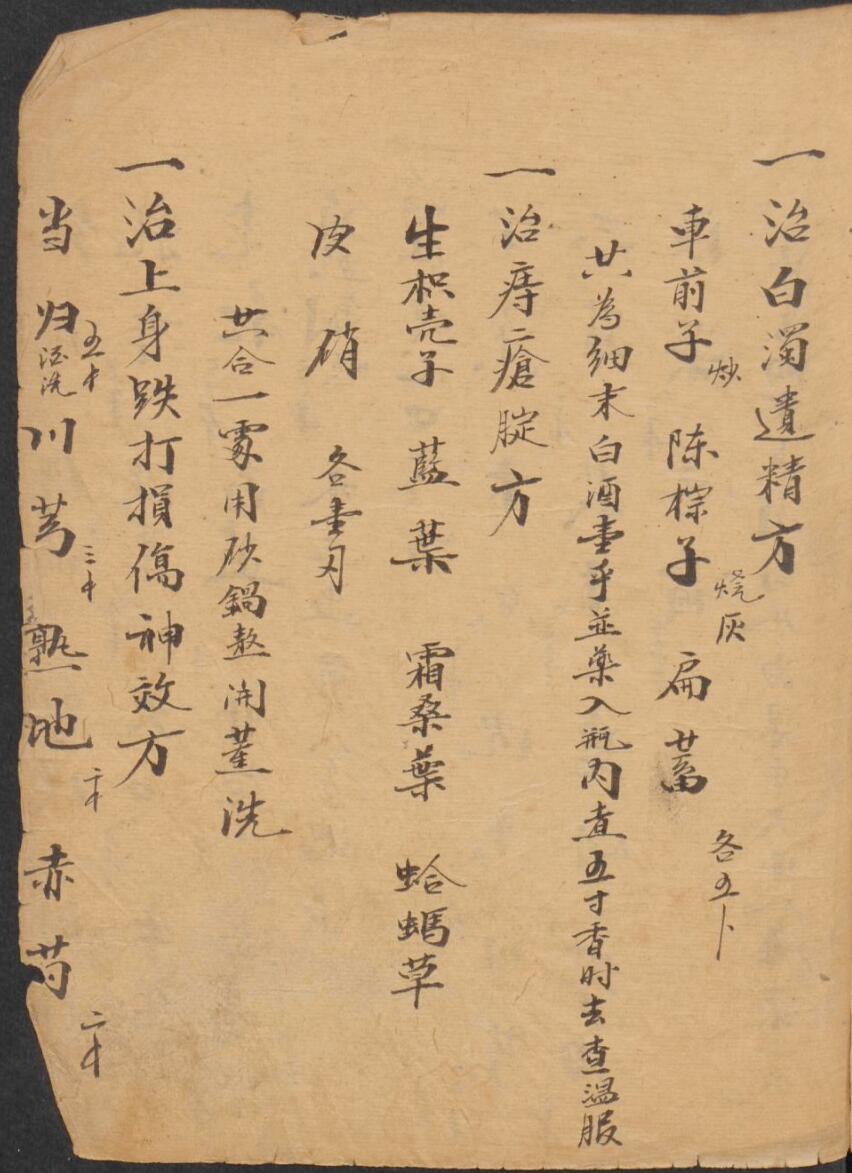 一治白濁遺精方
車前子炒 陈棕子烧灰 扁蓄各五卜
共為細末白酒壹乎並藥入瓶内煮五寸香时去查温服
一治痔瘡腚方
生枳壳子 藍葉 霜桑葉 蛤螞草
皮硝 各壹刄
共合一處用砂鍋熬开薰洗
一治上身跌打損傷神效方
当归五十酒洗 川芎三十 熟地二十 赤芍二十